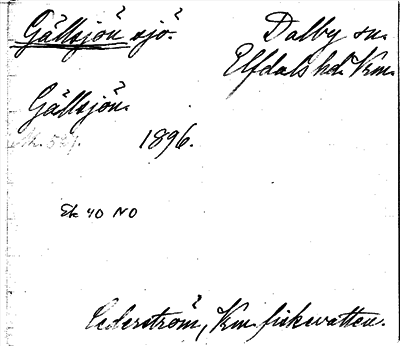 Gällsjön sjö.
Dalby sn.
Elfdals hd. Krm.
Gällsjön.
1896.
Ek 40 NO
Cederström, Krm. fiskvatten.